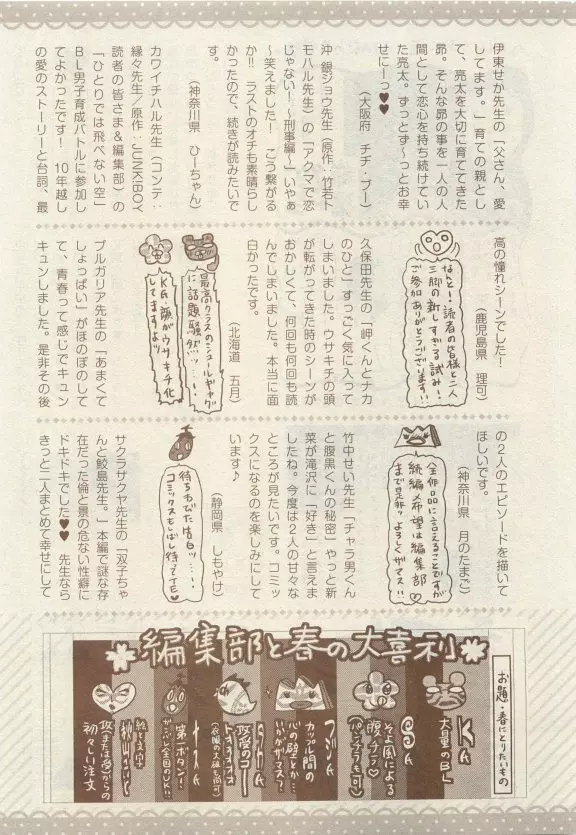 伊東せか先生の「父さん、愛
してます。」育ての親とし
て、亮太を大切に育ててきた
昴。そんな昴の事を一人の人
間として恋心を持ち続けてい
た亮太。ずっとずーっとお幸
せにーっ♥♥
（大阪府　チチ・ブー）
沖　銀ジョウ先生（原作：竹若ト
モハル先生）の「アクマで恋
じゃない！～刑事編～」いやぁ
～笑えました！　こう繋がる
か!!　ラストのオチも素晴らし
かったので、続きが読みたいで
す。
（神奈川県　ひーちゃん）
カワイチハル先生（コンテ：
縁々先生／原作：JUNKIBOY
読者の皆さま＆編集部）の
「ひとりでは飛べない空」
BL男子育成バトルに参加し
てよかったです！　10年越し
の愛のストーリーと台詞、最
高の憧れシーンでした！
（鹿児島県　理可）
なんと！読者の皆様と二人
三脚の新しすぎる試み！
ご参加ありがとうございます!!
久保田先生の「岬くんとナカ
のひと」すっごく気に入って
しまいました。ウサキチの頭
が転がってきた時のシーンが
おかしくて、何回も何回も読
んでしまいました。本当に面
白かったです。
（北海道　五月）
最高クラスのシュールギャグ
に話題騒然ッ…！
KA・顔がウサキチ化
してますよッ
ブルガリア先生の「あまくて
しょっぱい」がほのぼのして
て、青春って感じでキュン
キュンしました。是非その後
の2人のエピソードを描いて
ほしいです。
（神奈川県　月のたまご）
全作品に言えることですが
続編希望は編集部
まで是非ッよろしくザマス!!
竹中せい先生「チャラ男くん
と腹黒くんの秘密」やっと新
菜が滝沢に「好き」と言えま
したね。今度は2人の甘々な
ところが見たいです。コミッ
クスになるのを楽しみにして
います♪
（静岡県　しもやけ）
待ちわびた告白ッ…！
コミックスもしばし待っててE♥
サクラサクヤ先生の「双子ちゃ
んと鮫島先生。」本編で謎な存
在だった倫と景の危ない性癖に
ドキドキでした♥♥　先生なら
きっと二人まとめて幸せにして
編集部と春の大喜利
お題・春にとりたいもの
KA
大量のBL
SA
そよ風による
腹チラ♡
（パンチラも可）
カップル間の
心の壁とか…
いかがザマス？
（衣服の大破も尚可）
第一ボタン！
絵と文字
攻（または受）からの
初々しい注文